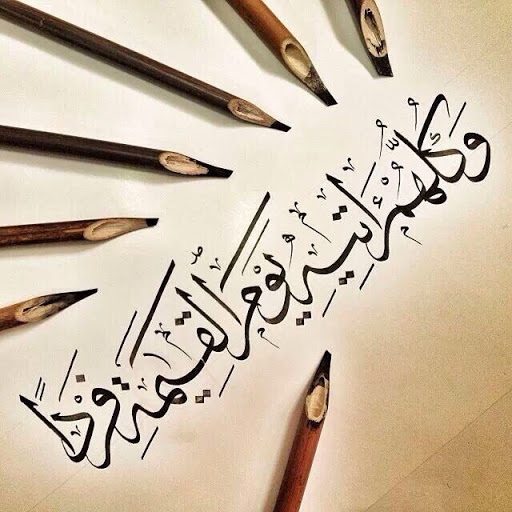 وَكُلُّهُمْ ءَاتِيهِ يَوْمَ الْقِيَٰمَةِ فَرْدًا